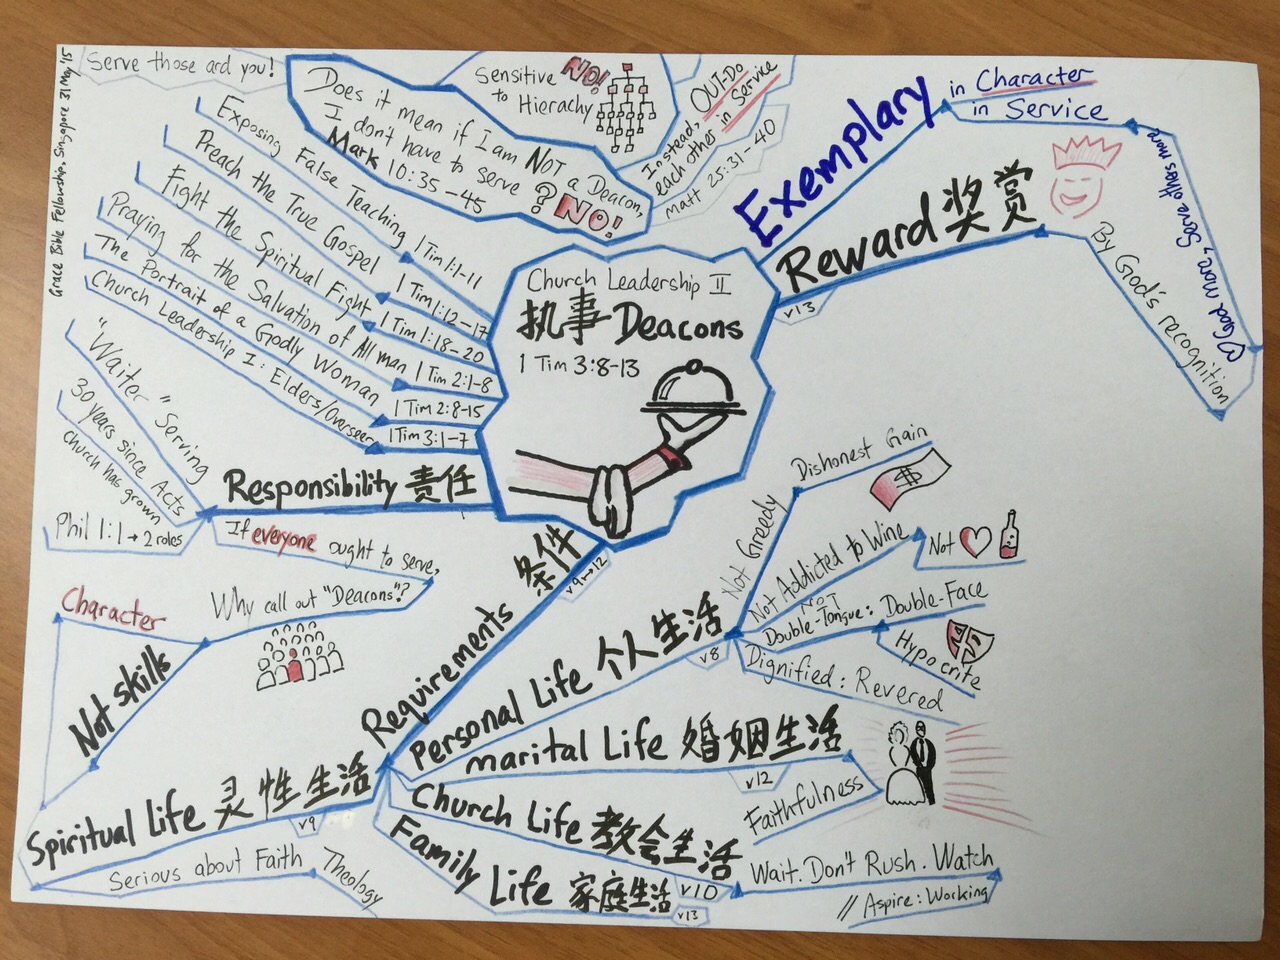 Grace Bible Fellowship, Singapore 31 May '15
Serve those ard you!
Does it mean if I am NOT a Deacon,
I don't have to serve?
NO!
Mark 10:35-45
Sensitive
to Hierachy
NO!
Instead, OUT-DO
each other in Service
Matt 25:31-40
Exemplary
in Character
in Service
Lead more, Serve others more
Reward 奖赏
v13
By God's recognition
Church Leadership II
执事 Deacons
1 Tim 3:8-13
Exposing False Teaching 1 Tim 1:1-11
Preach the True Gospel 1 Tim 1:12-17
Fight the Spiritual Fight 1 Tim 1:18-20
Praying for the Salvation of All man 1 Tim 2:1-8
The Portrait of a Godly Woman 1 Tim 2:8-15
Church Leadership I: Elders/Overseer 1 Tim 3:1-7
Responsibility 责任
"Waiter" Serving
30 years since Acts
church has grown
Phil 1:1 → 2 roles
If everyone ought to serve,
Why call out "Deacons"?
Character
Not skills
Requirements 条件
v9→12
Personal Life 个人生活
v8
Not Greedy
Dishonest Gain
$
Not Addicted to Wine
Not
NOT
Double-Tongue: Double-Face
Hypocrite
Dignified: Revered
marital Life 婚姻生活
v12
Faithfulness
Church Life 教会生活
v10
Wait. Don't Rush. Watch
// Aspire: Working
Family Life 家庭生活
v13
Spiritual Life 灵性生活
v9
Serious about Faith
Theology